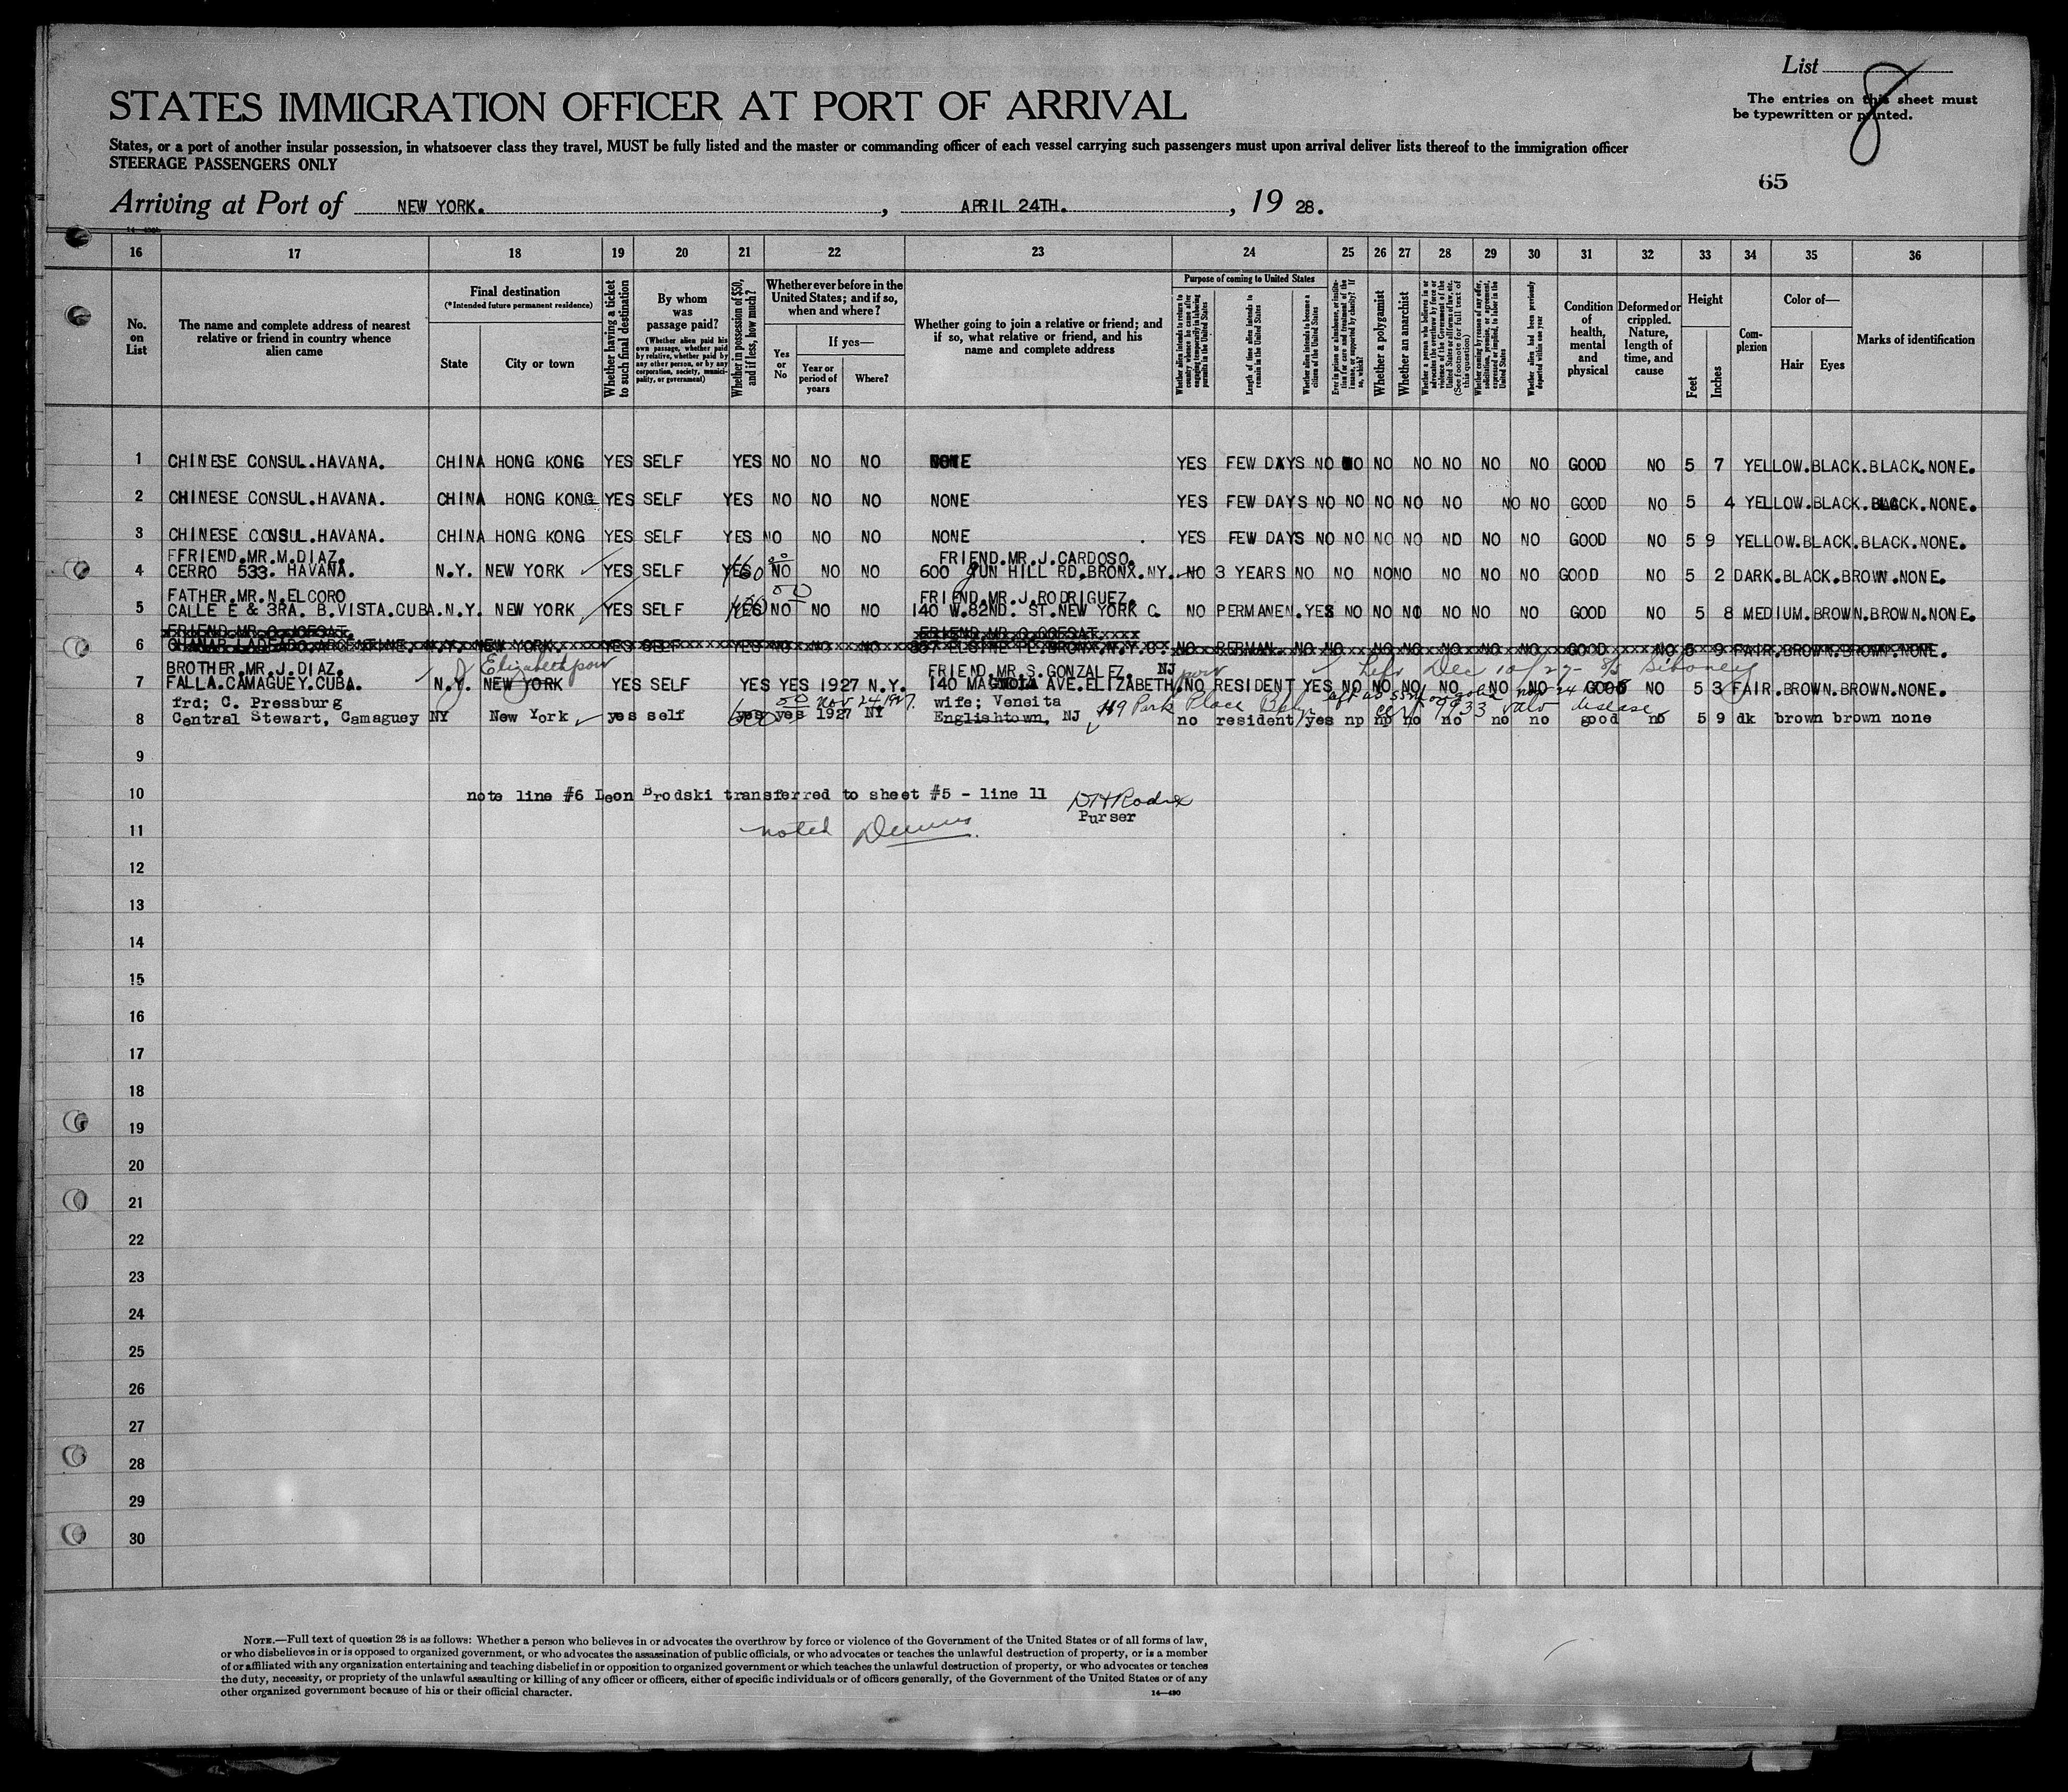 List 8
The entries on this sheet must
be typewritten or printed.
STATES IMMIGRATION OFFICER AT PORT OF ARRIVAL
States, or a port of another insular possession, in whatsoever class they travel, MUST be fully listed and the master or commanding officer of each vessel carrying such passengers must upon arrival deliver lists thereof to the immigration officer
STEERAGE PASSENGERS ONLY
65
Arriving at Port of NEW YORK. , APRIL 24TH. , 19 28.
16 17 18 19 20 21 22 23 24 25 26 27 28 29 30 31 32 33 34 35 36
No. on List
The name and complete address of nearest relative or friend in country whence alien came
Final destination
(*Intended future permanent residence)
State
City or town
Whether having a ticket to such final destination
By whom was passage paid?
(Whether alien paid his own passage, whether paid by relative, whether paid by any other person, or by any corporation, society, municipality, or government)
Whether in possession of $50, and if less, how much?
Whether ever before in the United States; and if so, when and where?
Yes or No
If yes—
Year or period of years
Where?
Whether going to join a relative or friend; and if so, what relative or friend, and his name and complete address
Purpose of coming to United States
Whether alien intends to return to country whence he came after engaging temporarily in laboring pursuits in the United States
Length of time alien intends to remain in the United States
Whether alien intends to become a citizen of the United States
Ever in prison or almshouse, or institution for care and treatment of the insane, or supported by charity? If so, which?
Whether a polygamist
Whether an anarchist
Whether a person who believes in or advocates the overthrow by force or violence of the Government of the United States or all forms of law, etc. (See footnote for full text of this question)
Whether coming by reason of any offer, solicitation, promise, or agreement, expressed or implied, to labor in the United States
Whether alien had been previously deported within one year
Condition of health, mental and physical
Deformed or crippled. Nature, length of time, and cause
Height
Feet
Inches
Complexion
Color of—
Hair
Eyes
Marks of identification
1 CHINESE CONSUL.HAVANA. CHINA HONG KONG YES SELF YES NO NO NO NONE YES FEW DAYS NO NO NO NO NO NO NO GOOD NO 5 7 YELLOW.BLACK.BLACK.NONE.
2 CHINESE CONSUL.HAVANA. CHINA HONG KONG YES SELF YES NO NO NO NONE YES FEW DAYS NO NO NO NO NO NO NO GOOD NO 5 4 YELLOW.BLACK.BLACK.NONE.
3 CHINESE CONSUL.HAVANA. CHINA HONG KONG YES SELF YES NO NO NO NONE YES FEW DAYS NO NO NO NO NO NO NO GOOD NO 5 9 YELLOW.BLACK.BLACK.NONE.
FFRIEND.MR.M.DIAZ. FRIEND.MR.J.CARDOSO.
4 CERRO 533. HAVANA. N.Y. NEW YORK YES SELF YES NO NO NO 600 GUN HILL RD.BRONX.NY. NO 3 YEARS NO NO NO NO NO NO NO GOOD NO 5 2 DARK.BLACK.BROWN.NONE.
FATHER.MR.N.ELCORO FRIEND.MR.J.RODRIGUEZ.
5 CALLE E & 3RA. B.VISTA.CUBA.N.Y. NEW YORK YES SELF YES NO NO NO 140 W.82ND. ST.NEW YORK C. NO PERMANEN.YES NO NO NO NO NO NO GOOD NO 5 8 MEDIUM.BROWN.BROWN.NONE.
6 N.Y. NEW YORK. YES SELF YES NO NO NO NO PERMAN. NO NO NO NO NO NO NO GOOD NO 5 9 FAIR.BROWN.BROWN.NONE.
BROTHER.MR.J.DIAZ. Elizabethport FRIEND.MR.S.GONZALEZ. NJ port Left Dec 10/27- S/S Siboney
7 FALLA.CAMAGUEY.CUBA. N.Y. NEW YORK YES SELF YES YES 1927 N.Y. 140 MAGNOLIA AVE.ELIZABETH NO RESIDENT YES NO NO NO NO NO NO GOOD NO 5 3 FAIR.BROWN.BROWN.NONE.
frd; C. Pressburg 50 Nov 24 1927. wife; Veneita 119 Park Place cert 9933 disease
8 Central Stewart, Camaguey NY New York yes self yes yes 1927 NY Englishtown, NJ no resident yes np np no no no no good no 5 9 dk brown brown none
9
10 note line #6 Leon Brodski transferred to sheet #5 - line 11
Purser
11 noted
12
13
14
15
16
17
18
19
20
21
22
23
24
25
26
27
28
29
30
NOTE.—Full text of question 28 is as follows: Whether a person who believes in or advocates the overthrow by force or violence of the Government of the United States or of all forms of law,
or who disbelieves in or is opposed to organized government, or who advocates the assassination of public officials, or who advocates or teaches the unlawful destruction of property, or is a member
of or affiliated with any organization entertaining and teaching disbelief in or opposition to organized government or which teaches the unlawful destruction of property, or who advocates or teaches
the duty, necessity, or propriety of the unlawful assaulting or killing of any officer or officers, either of specific individuals or of officers generally, of the Government of the United States or of any
other organized government because of his or their official character.
14—490